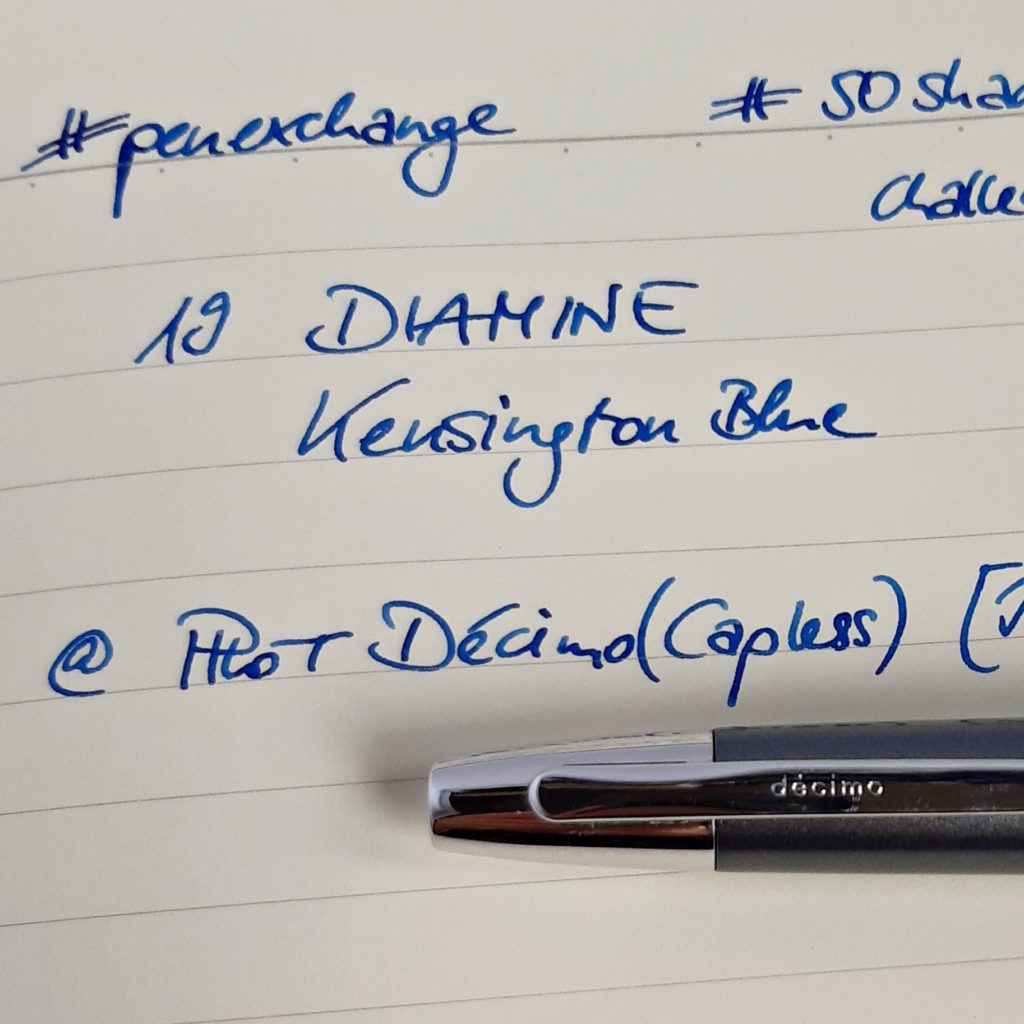 #penexchange #50sha
Challe
19 DIAMINE
Kensington Blue
@ PILOT Décimo (Capless) [
décimo